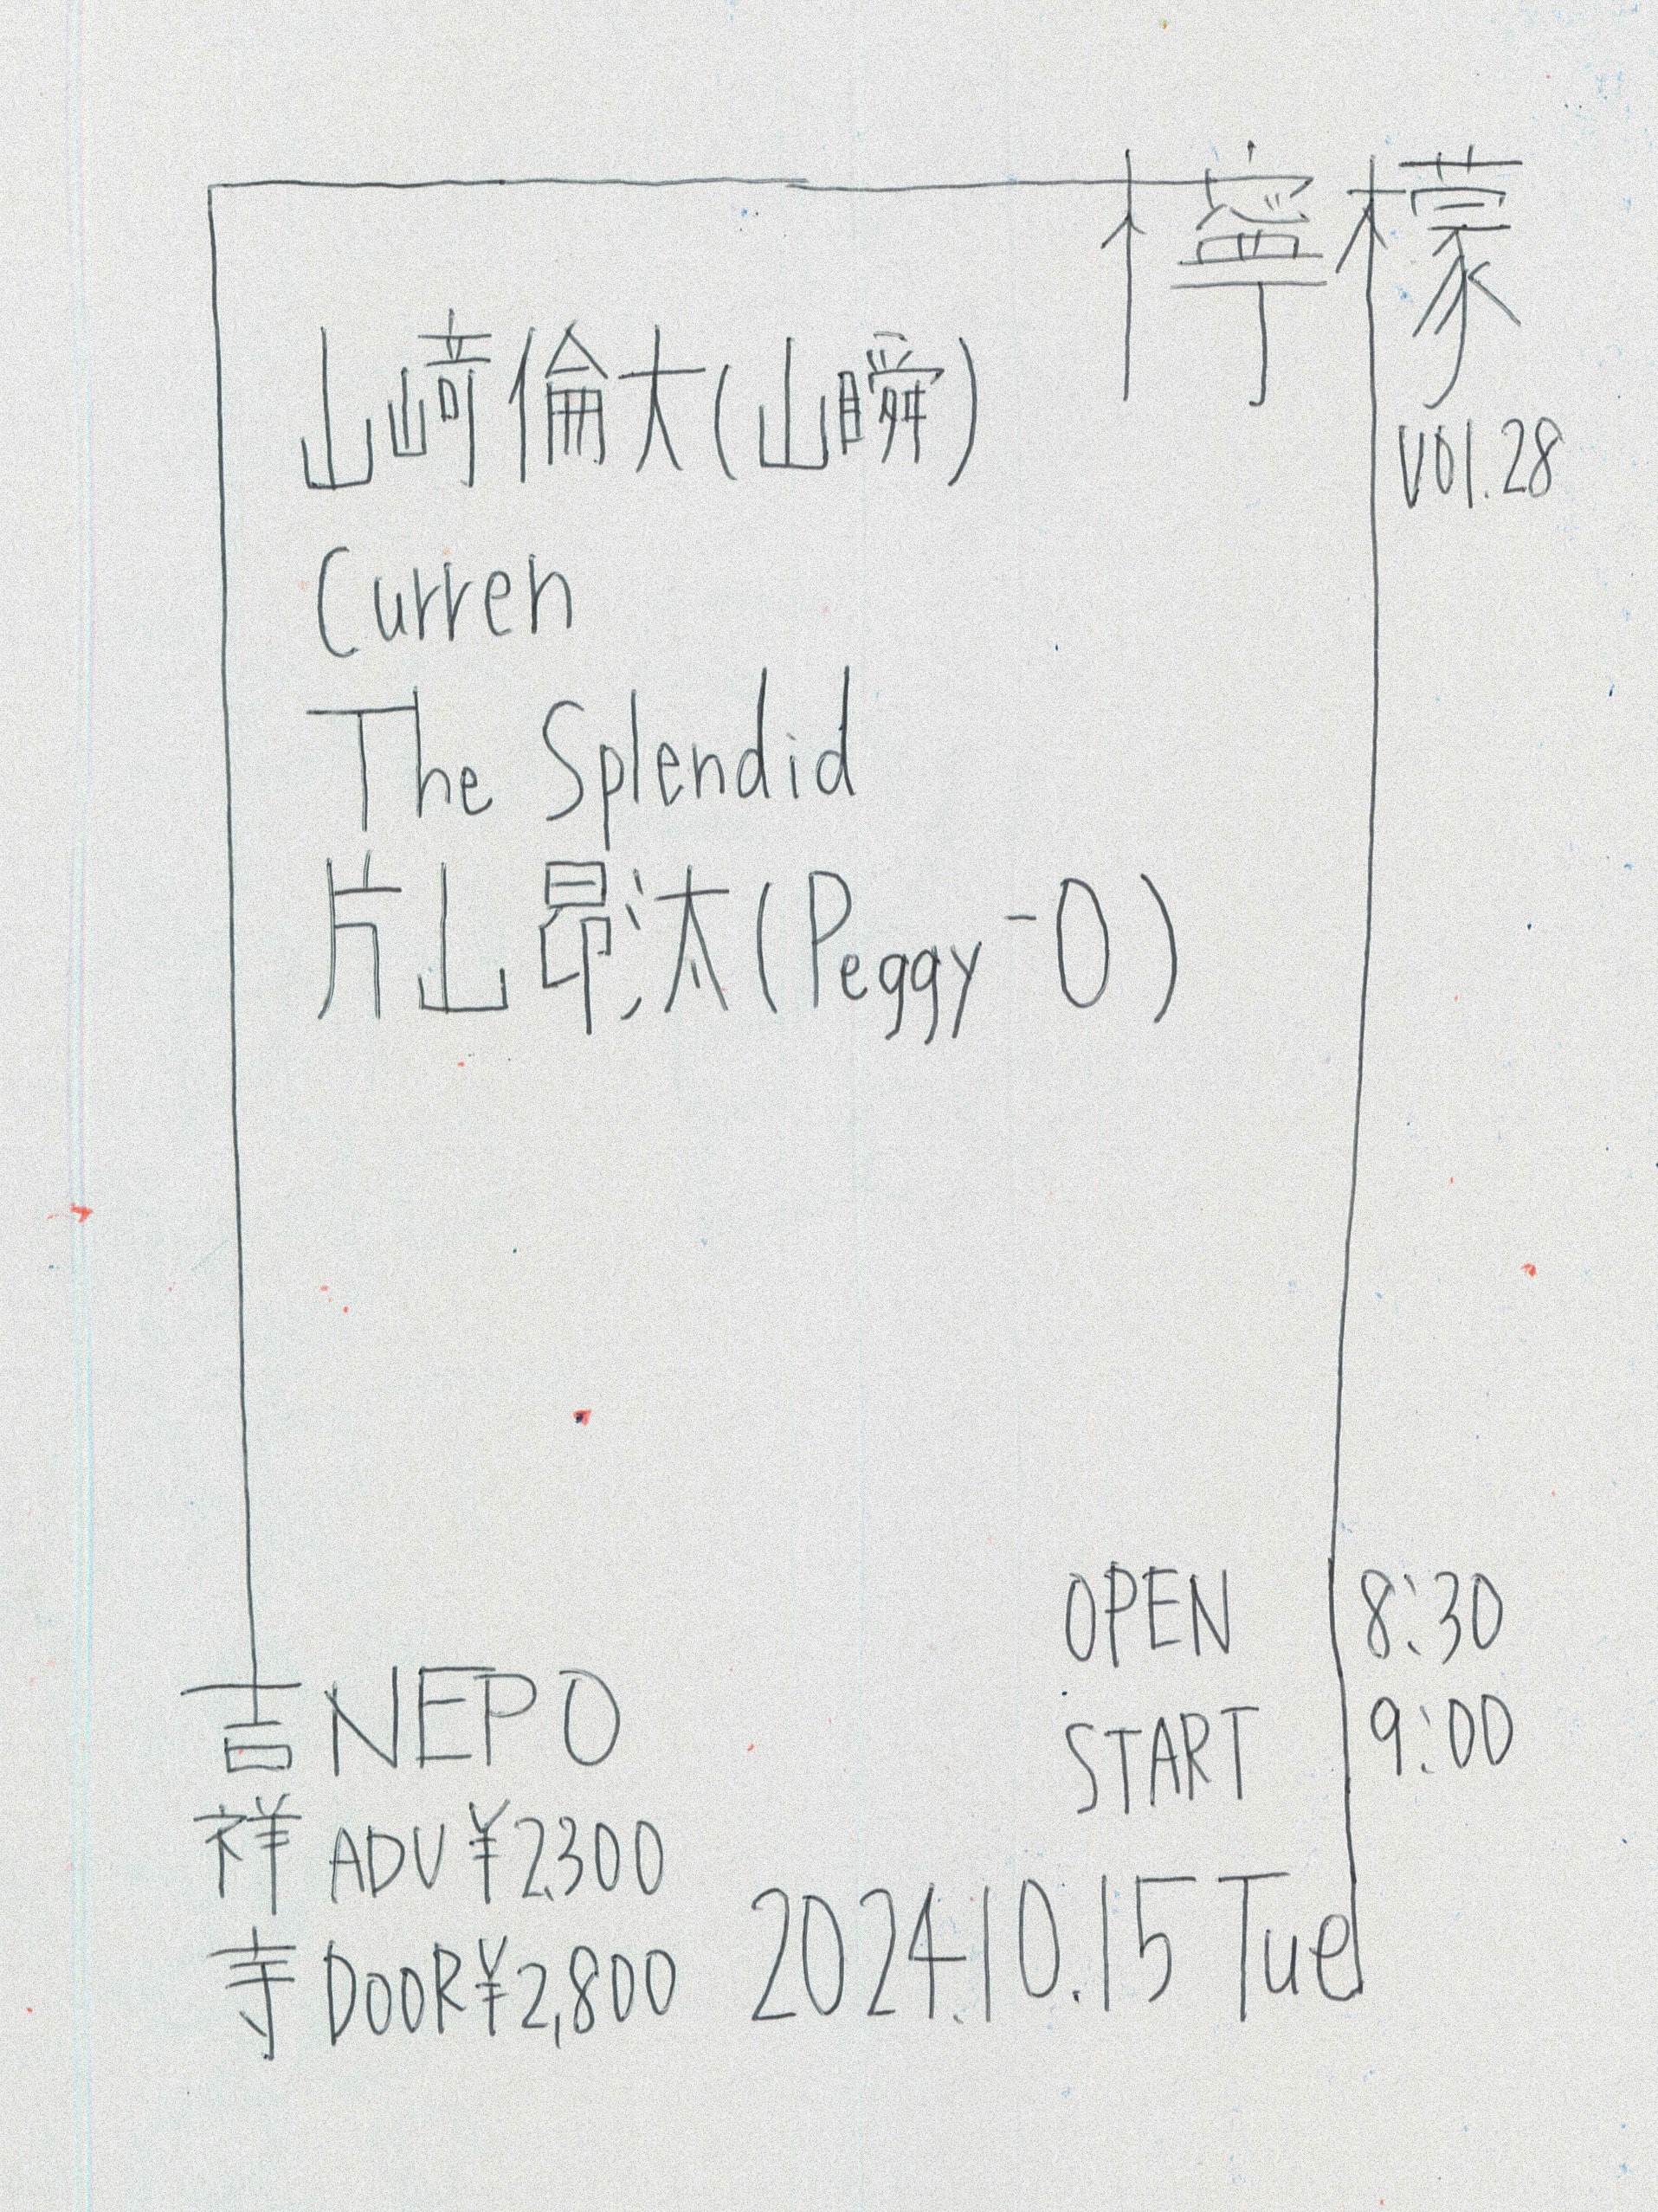 檸檬
vol.28
山﨑倫大(山瞬)
Curren
The Splendid
片山昂汰(Peggy-O)
OPEN 8:30
START 9:00
吉祥寺
NEPO
ADV ¥2,300
DOOR ¥2,800
2024.10.15 Tue